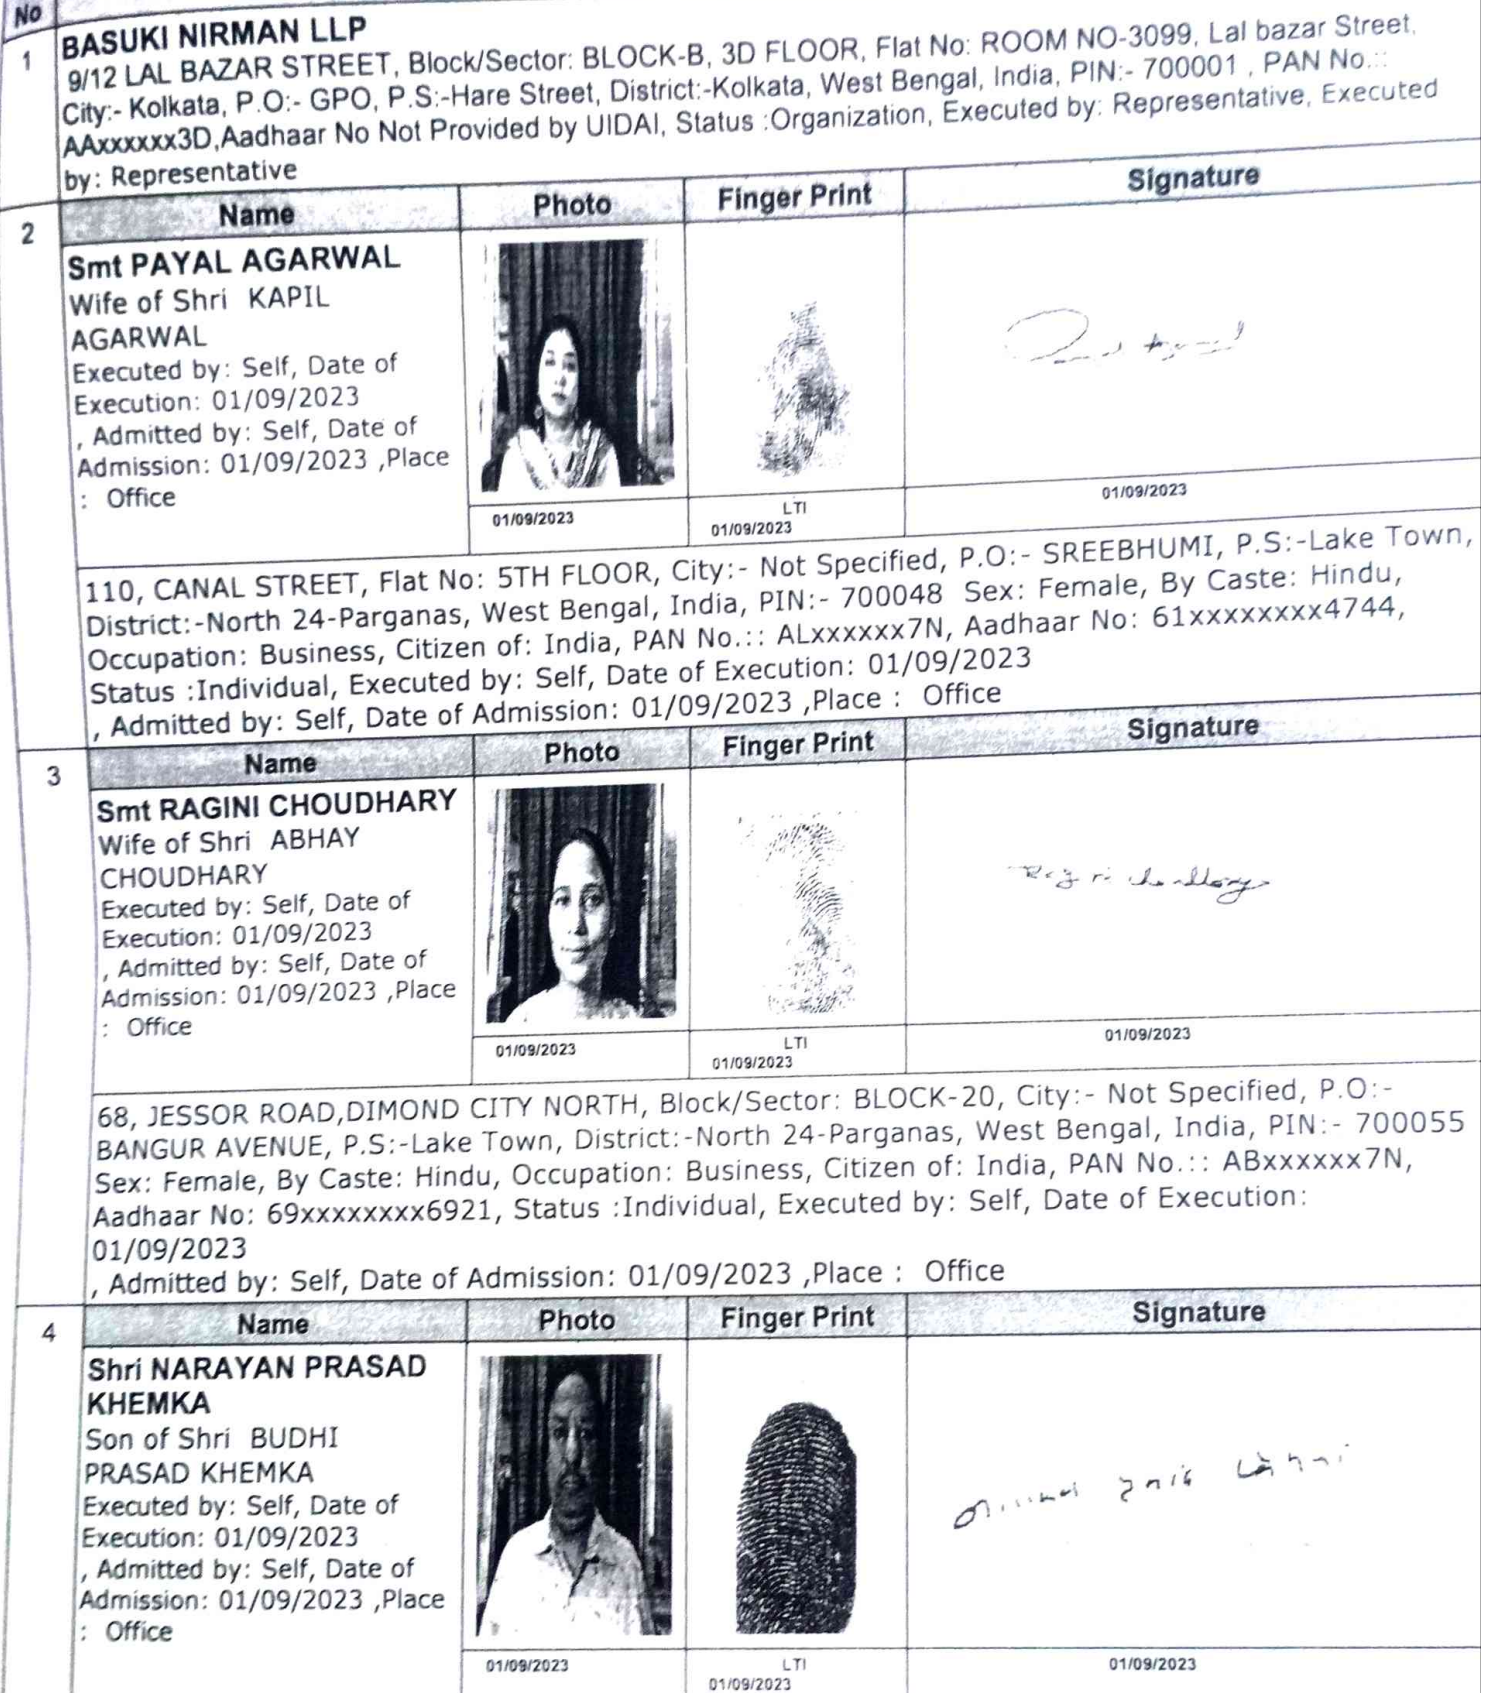 No
1 BASUKI NIRMAN LLP
9/12 LAL BAZAR STREET, Block/Sector: BLOCK-B, 3D FLOOR, Flat No: ROOM NO-3099, Lal bazar Street,
City:- Kolkata, P.O:- GPO, P.S:-Hare Street, District:-Kolkata, West Bengal, India, PIN:- 700001 , PAN No.::
AAxxxxxx3D,Aadhaar No Not Provided by UIDAI, Status :Organization, Executed by: Representative, Executed
by: Representative
2 Name Photo Finger Print Signature
Smt PAYAL AGARWAL
Wife of Shri KAPIL
AGARWAL
Executed by: Self, Date of
Execution: 01/09/2023
, Admitted by: Self, Date of
Admission: 01/09/2023 ,Place
: Office
01/09/2023 LTI 01/09/2023
01/09/2023
110, CANAL STREET, Flat No: 5TH FLOOR, City:- Not Specified, P.O:- SREEBHUMI, P.S:-Lake Town,
District:-North 24-Parganas, West Bengal, India, PIN:- 700048 Sex: Female, By Caste: Hindu,
Occupation: Business, Citizen of: India, PAN No.:: ALxxxxxx7N, Aadhaar No: 61xxxxxxxx4744,
Status :Individual, Executed by: Self, Date of Execution: 01/09/2023
, Admitted by: Self, Date of Admission: 01/09/2023 ,Place : Office
3 Name Photo Finger Print Signature
Smt RAGINI CHOUDHARY
Wife of Shri ABHAY
CHOUDHARY
Executed by: Self, Date of
Execution: 01/09/2023
, Admitted by: Self, Date of
Admission: 01/09/2023 ,Place
: Office
01/09/2023 LTI 01/09/2023
01/09/2023
68, JESSOR ROAD,DIMOND CITY NORTH, Block/Sector: BLOCK-20, City:- Not Specified, P.O:-
BANGUR AVENUE, P.S:-Lake Town, District:-North 24-Parganas, West Bengal, India, PIN:- 700055
Sex: Female, By Caste: Hindu, Occupation: Business, Citizen of: India, PAN No.:: ABxxxxxx7N,
Aadhaar No: 69xxxxxxxx6921, Status :Individual, Executed by: Self, Date of Execution:
01/09/2023
, Admitted by: Self, Date of Admission: 01/09/2023 ,Place : Office
4 Name Photo Finger Print Signature
Shri NARAYAN PRASAD
KHEMKA
Son of Shri BUDHI
PRASAD KHEMKA
Executed by: Self, Date of
Execution: 01/09/2023
, Admitted by: Self, Date of
Admission: 01/09/2023 ,Place
: Office
01/09/2023 LTI 01/09/2023
01/09/2023